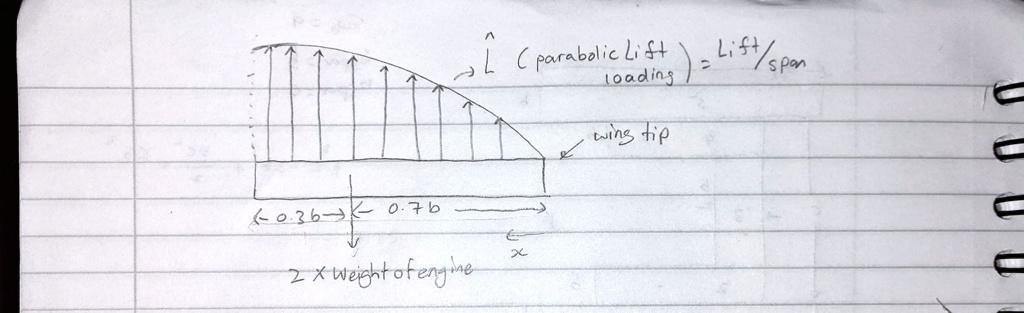 L̂ ( parabolic Lift loading ) = Lift/span
wing tip
0.3b
0.7b
x
2 x Weight of engine